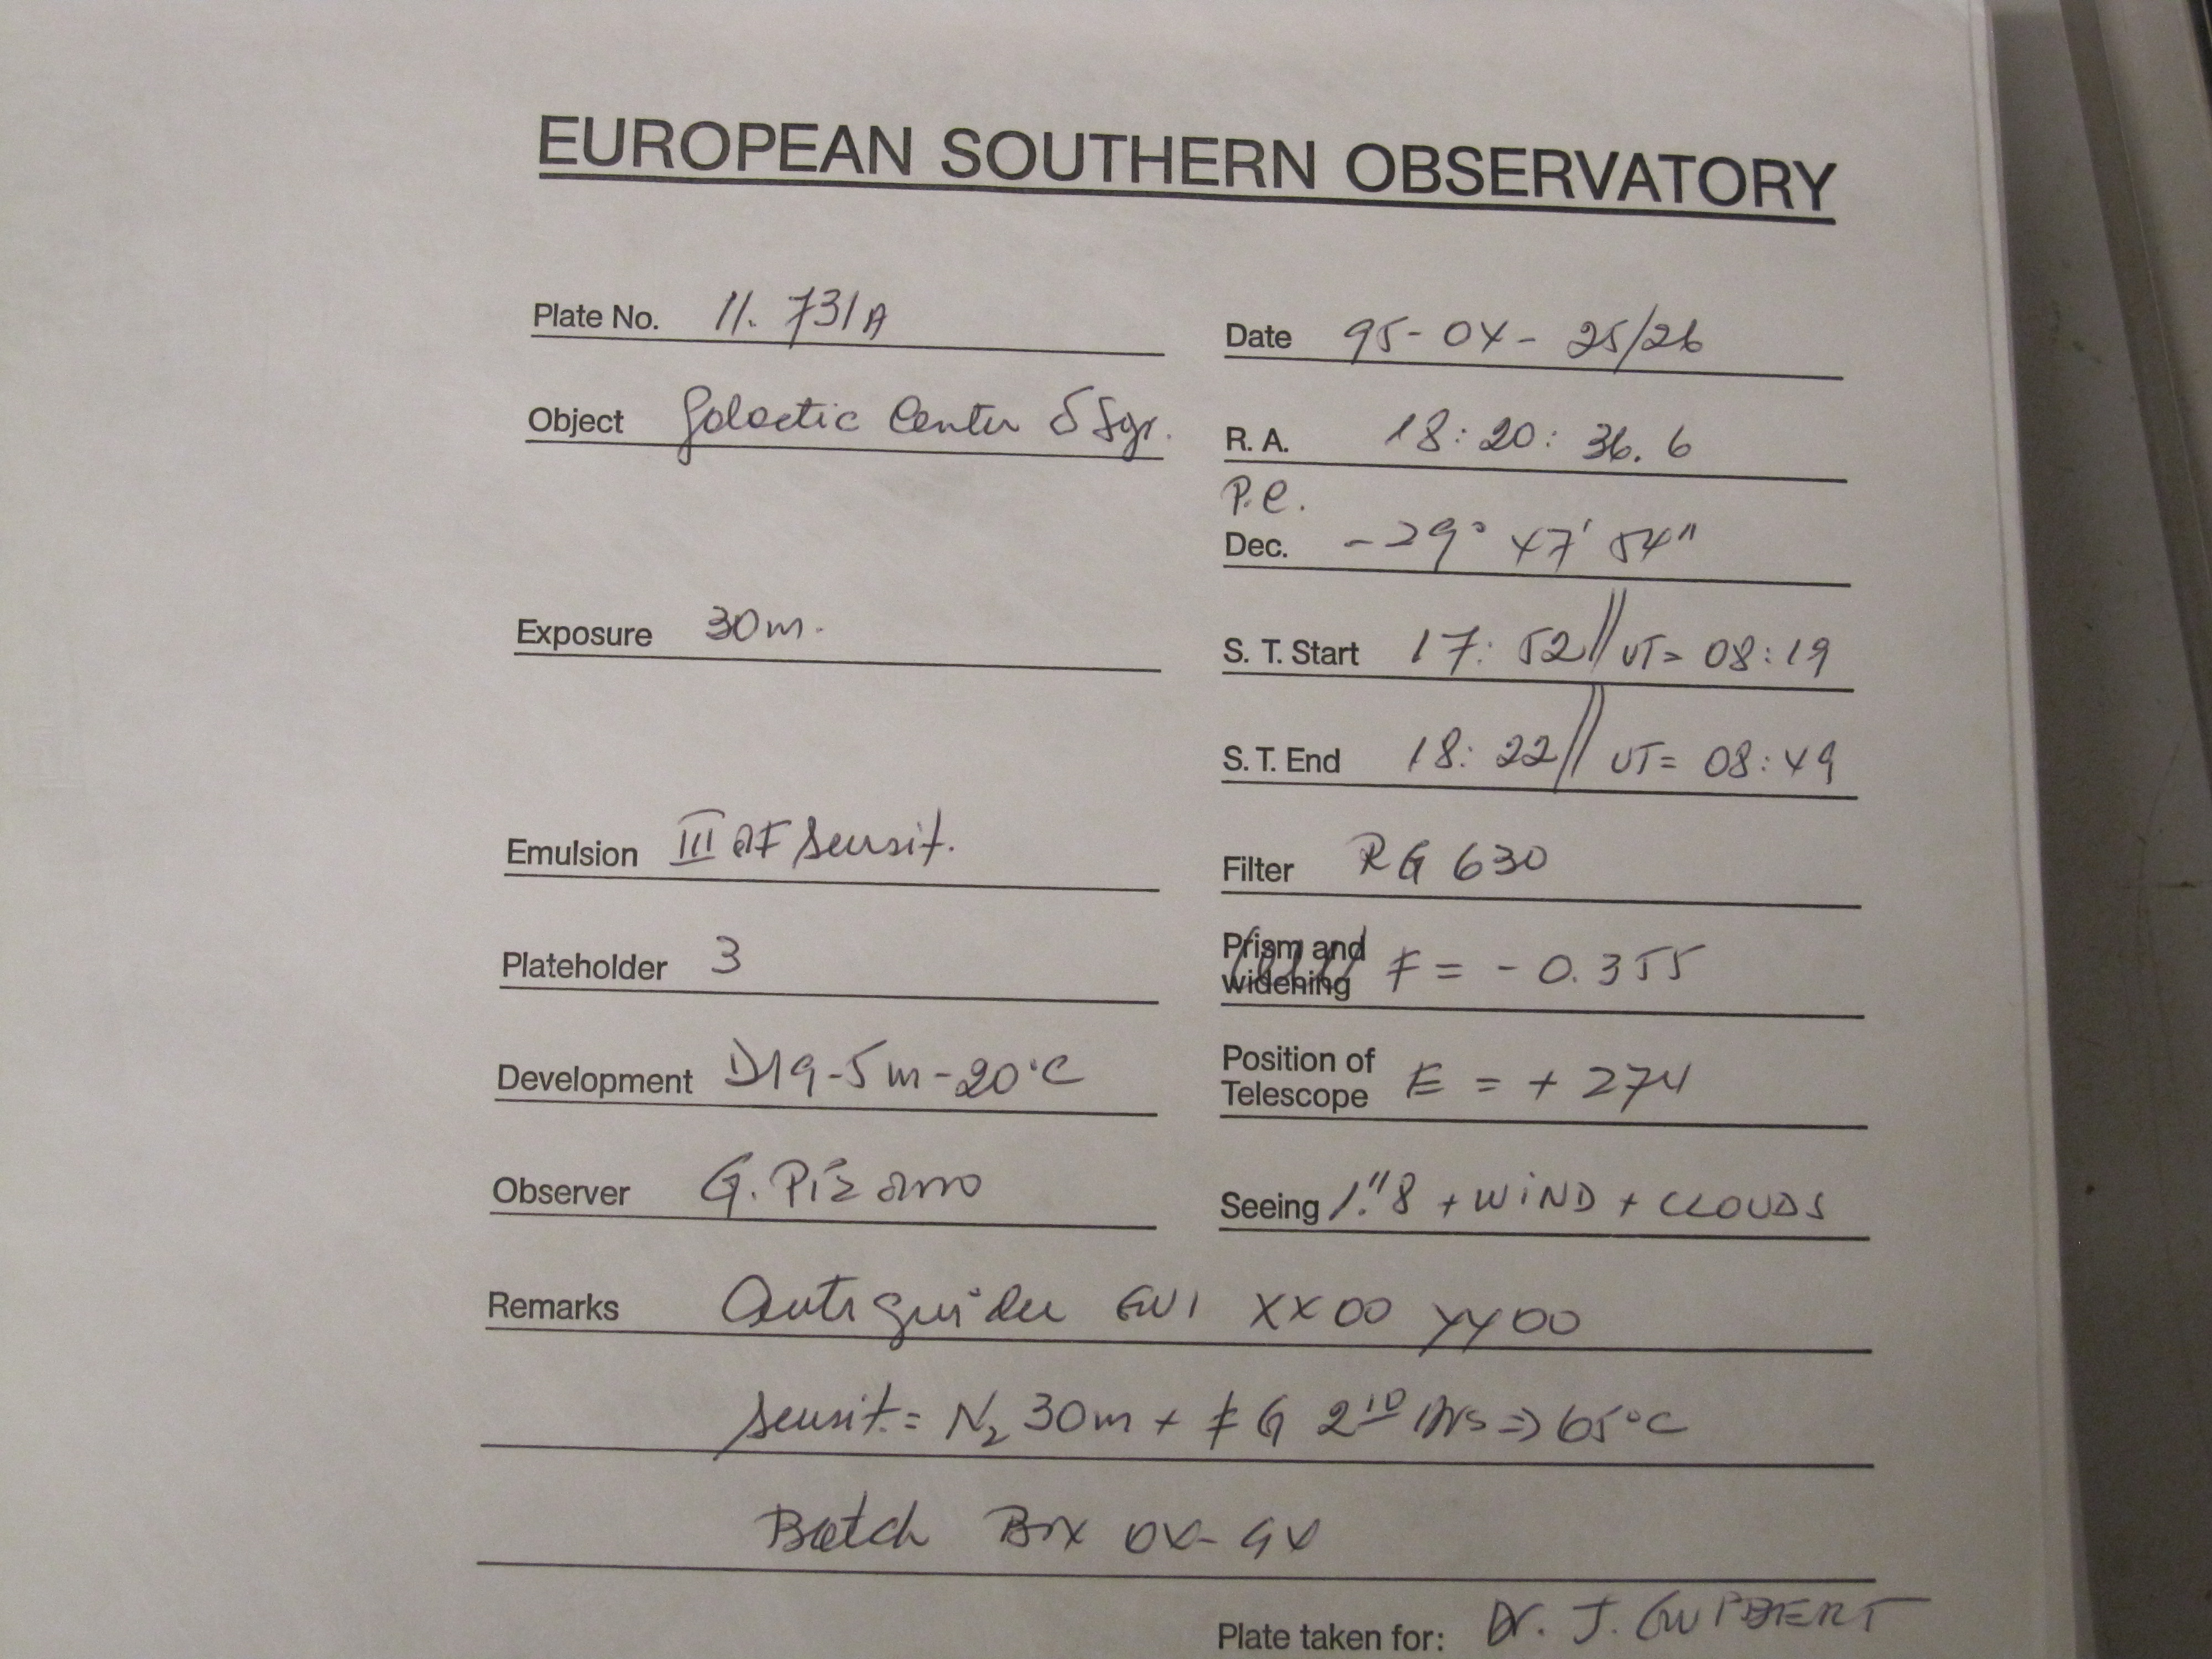 EUROPEAN SOUTHERN OBSERVATORY
Plate No. 11. 731A
Date 95-04-25/26
Object Galactic Center δ Sgr.
R. A. 18:20:36.6
P.e.
Dec. -29° 47' 54"
Exposure 30m.
S. T. Start 17:52 // UT= 08:19
S. T. End 18:22 // UT= 08:49
Emulsion III aF Sensit.
Filter RG 630
Plateholder 3
Prism and
widening F = - 0.355
Development D19-5m-20°C
Position of
Telescope E = + 274
Observer G. Pizarro
Seeing 1."8 + WIND + CLOUDS
Remarks Autoguider XX00 YY00
Sensit.= N2 30m + FG 2 10 Hrs => 65°C
Batch Box 04-94
Plate taken for: Dr. J.